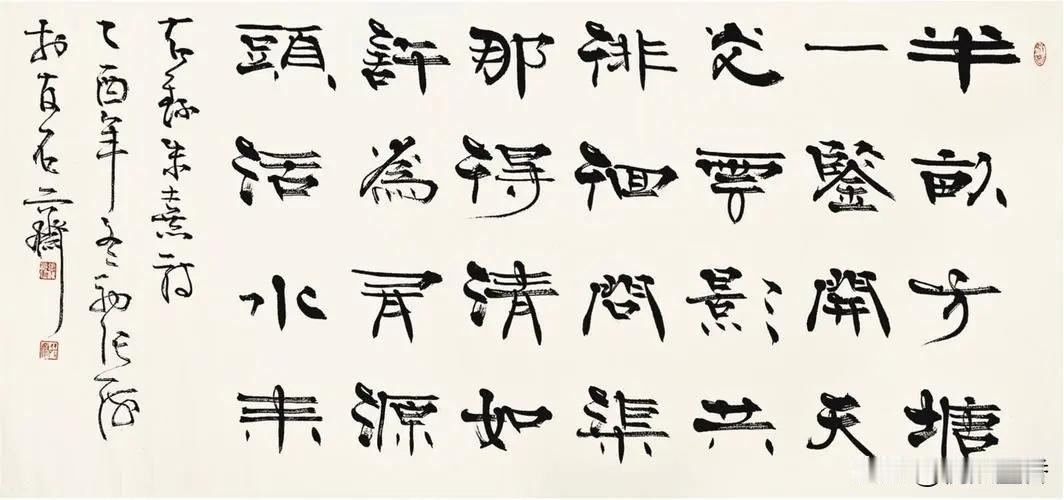 半畝方塘
一鑒開天
光雲影共
徘徊問渠
那得清如
許為有源
頭活水来
右錄朱熹詩
乙酉年冬初
於石齋